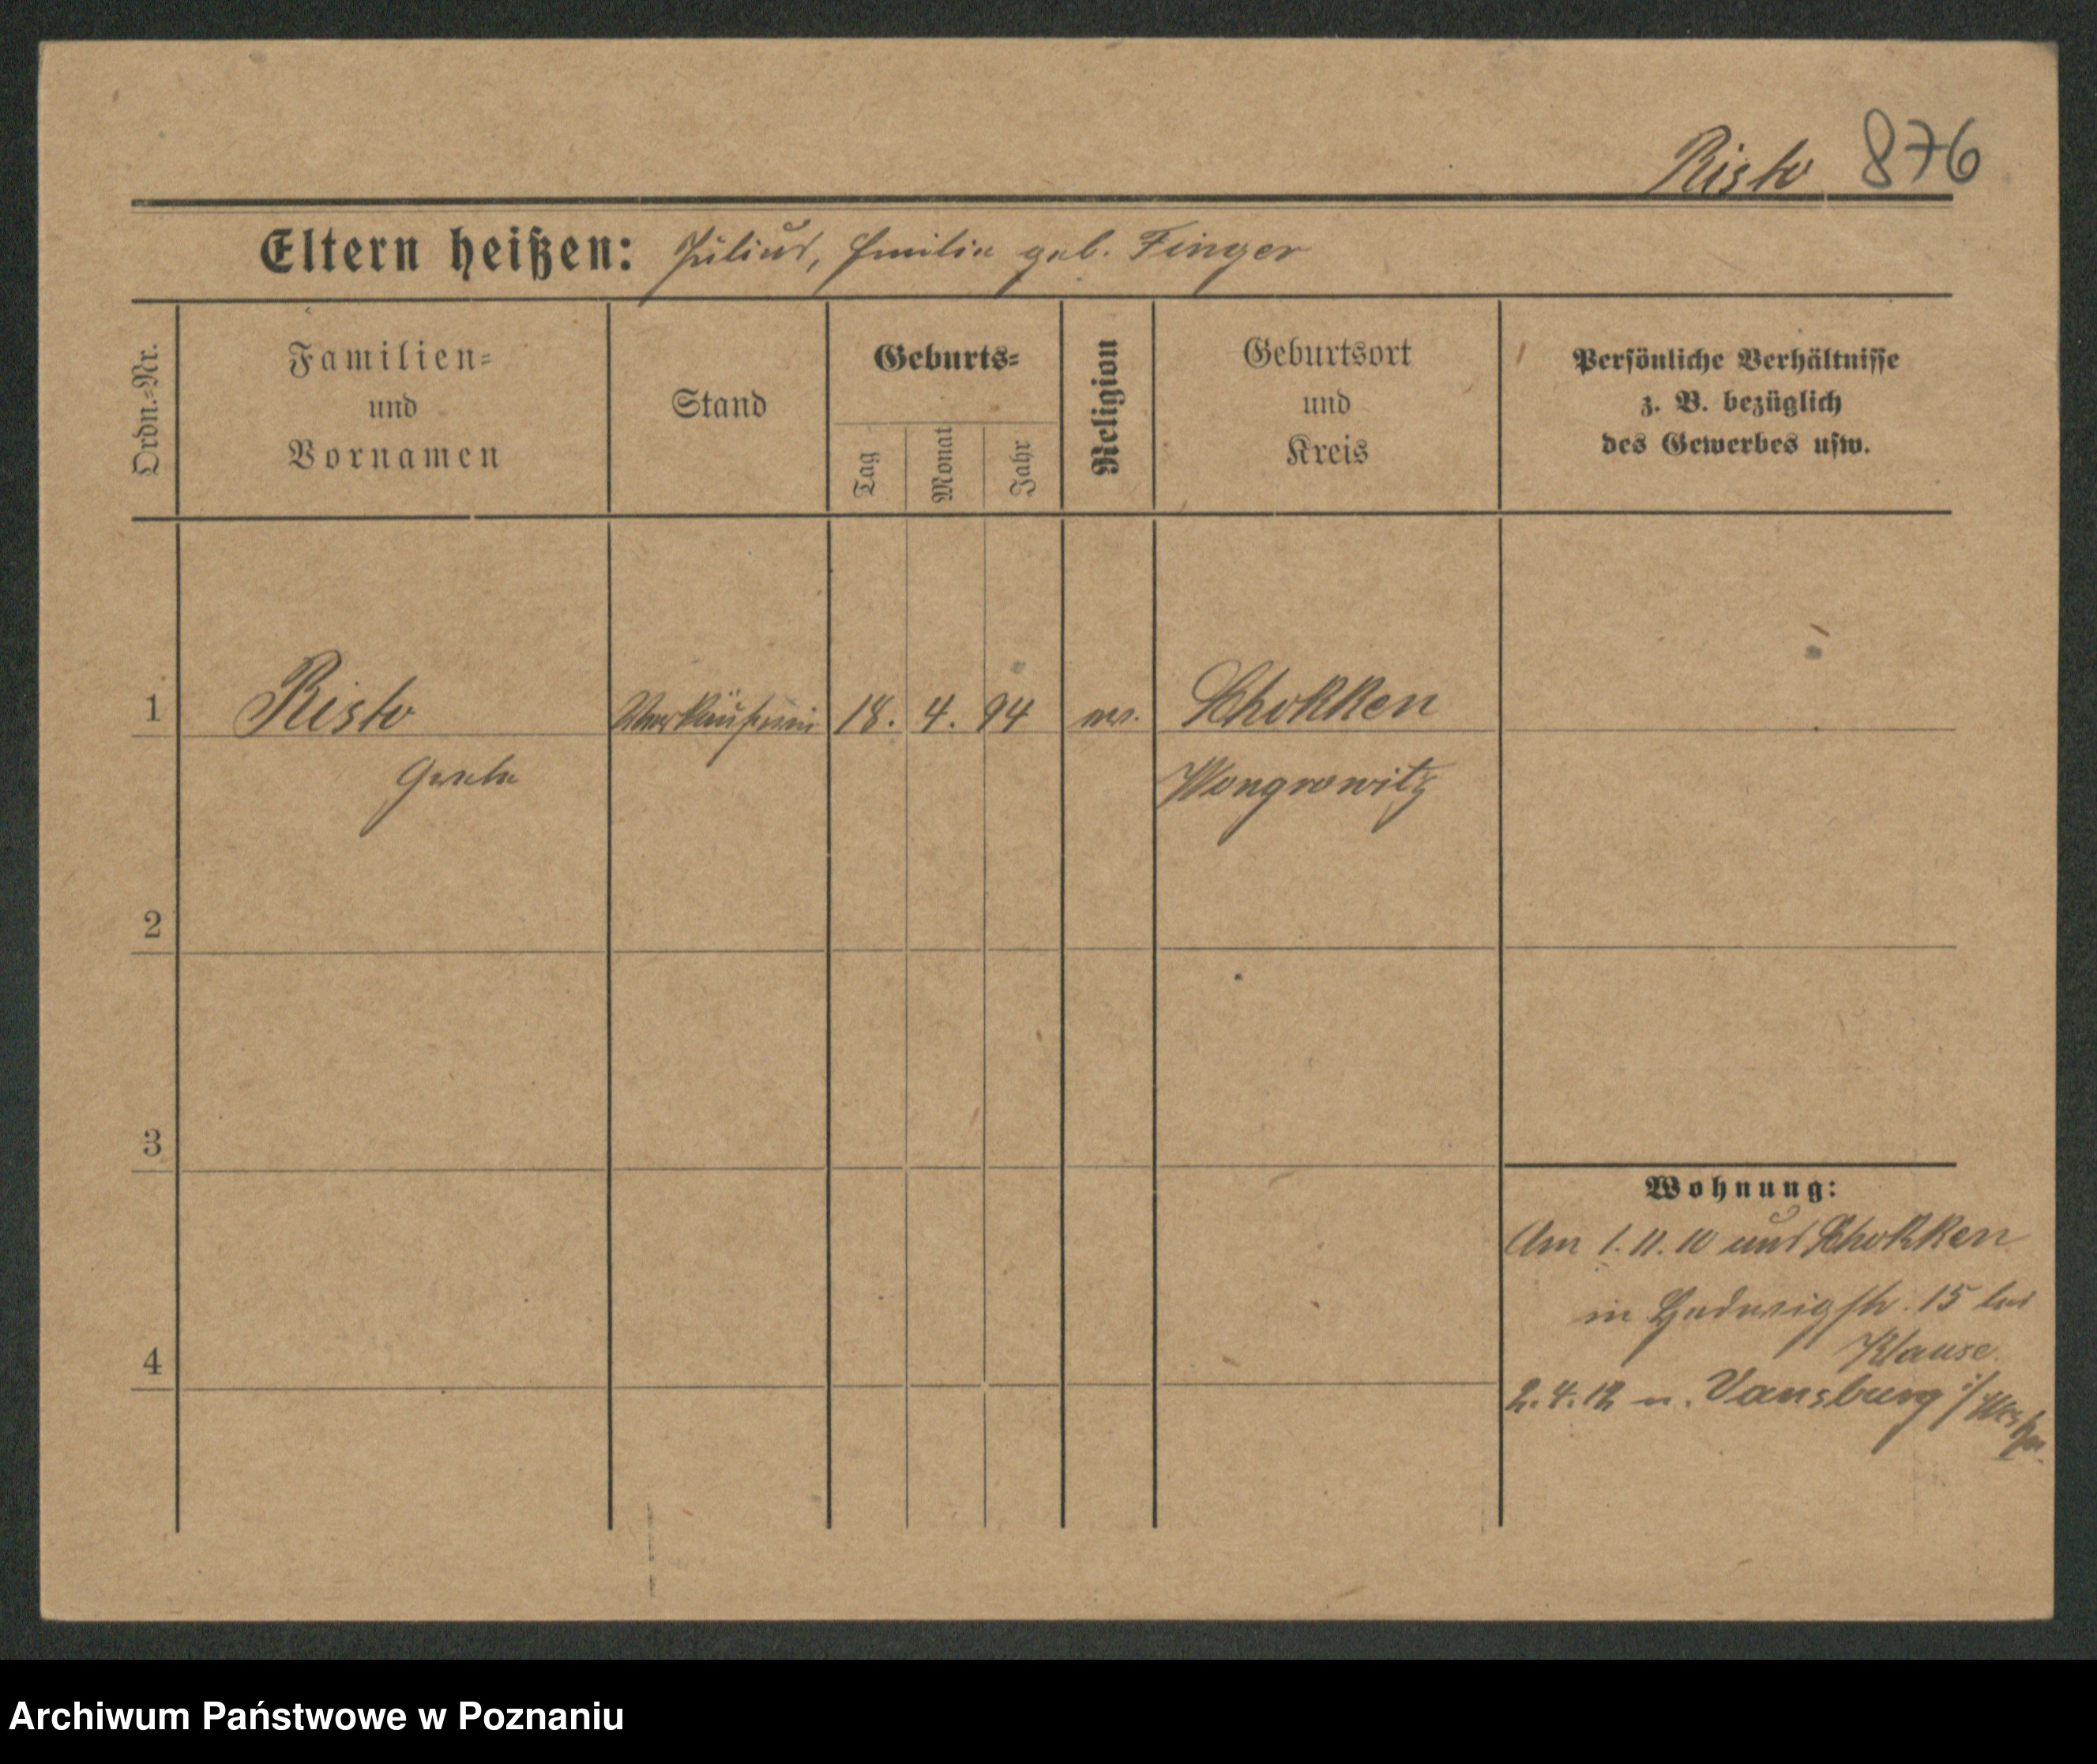 Risto 876
Eltern heißen: Julius, Emilie geb. Finger
Ordn.=Nr.
Familien=
und
Vornamen
Stand
Geburts=
Tag
Monat
Jahr
Religion
Geburtsort
und
Kreis
Persönliche Verhältnisse
z. B. bezüglich
des Gewerbes usw.
1 Risto Verkäuferin 18. 4. 94 ev. Schokken
Wongrowitz
2
3
4
Wohnung:
Am 1.11.10 aus Schokken
in Hedwigstr. 15 bei
Klause.
2.4.12 n. Vansburg i/Westpr.
Archiwum Państwowe w Poznaniu